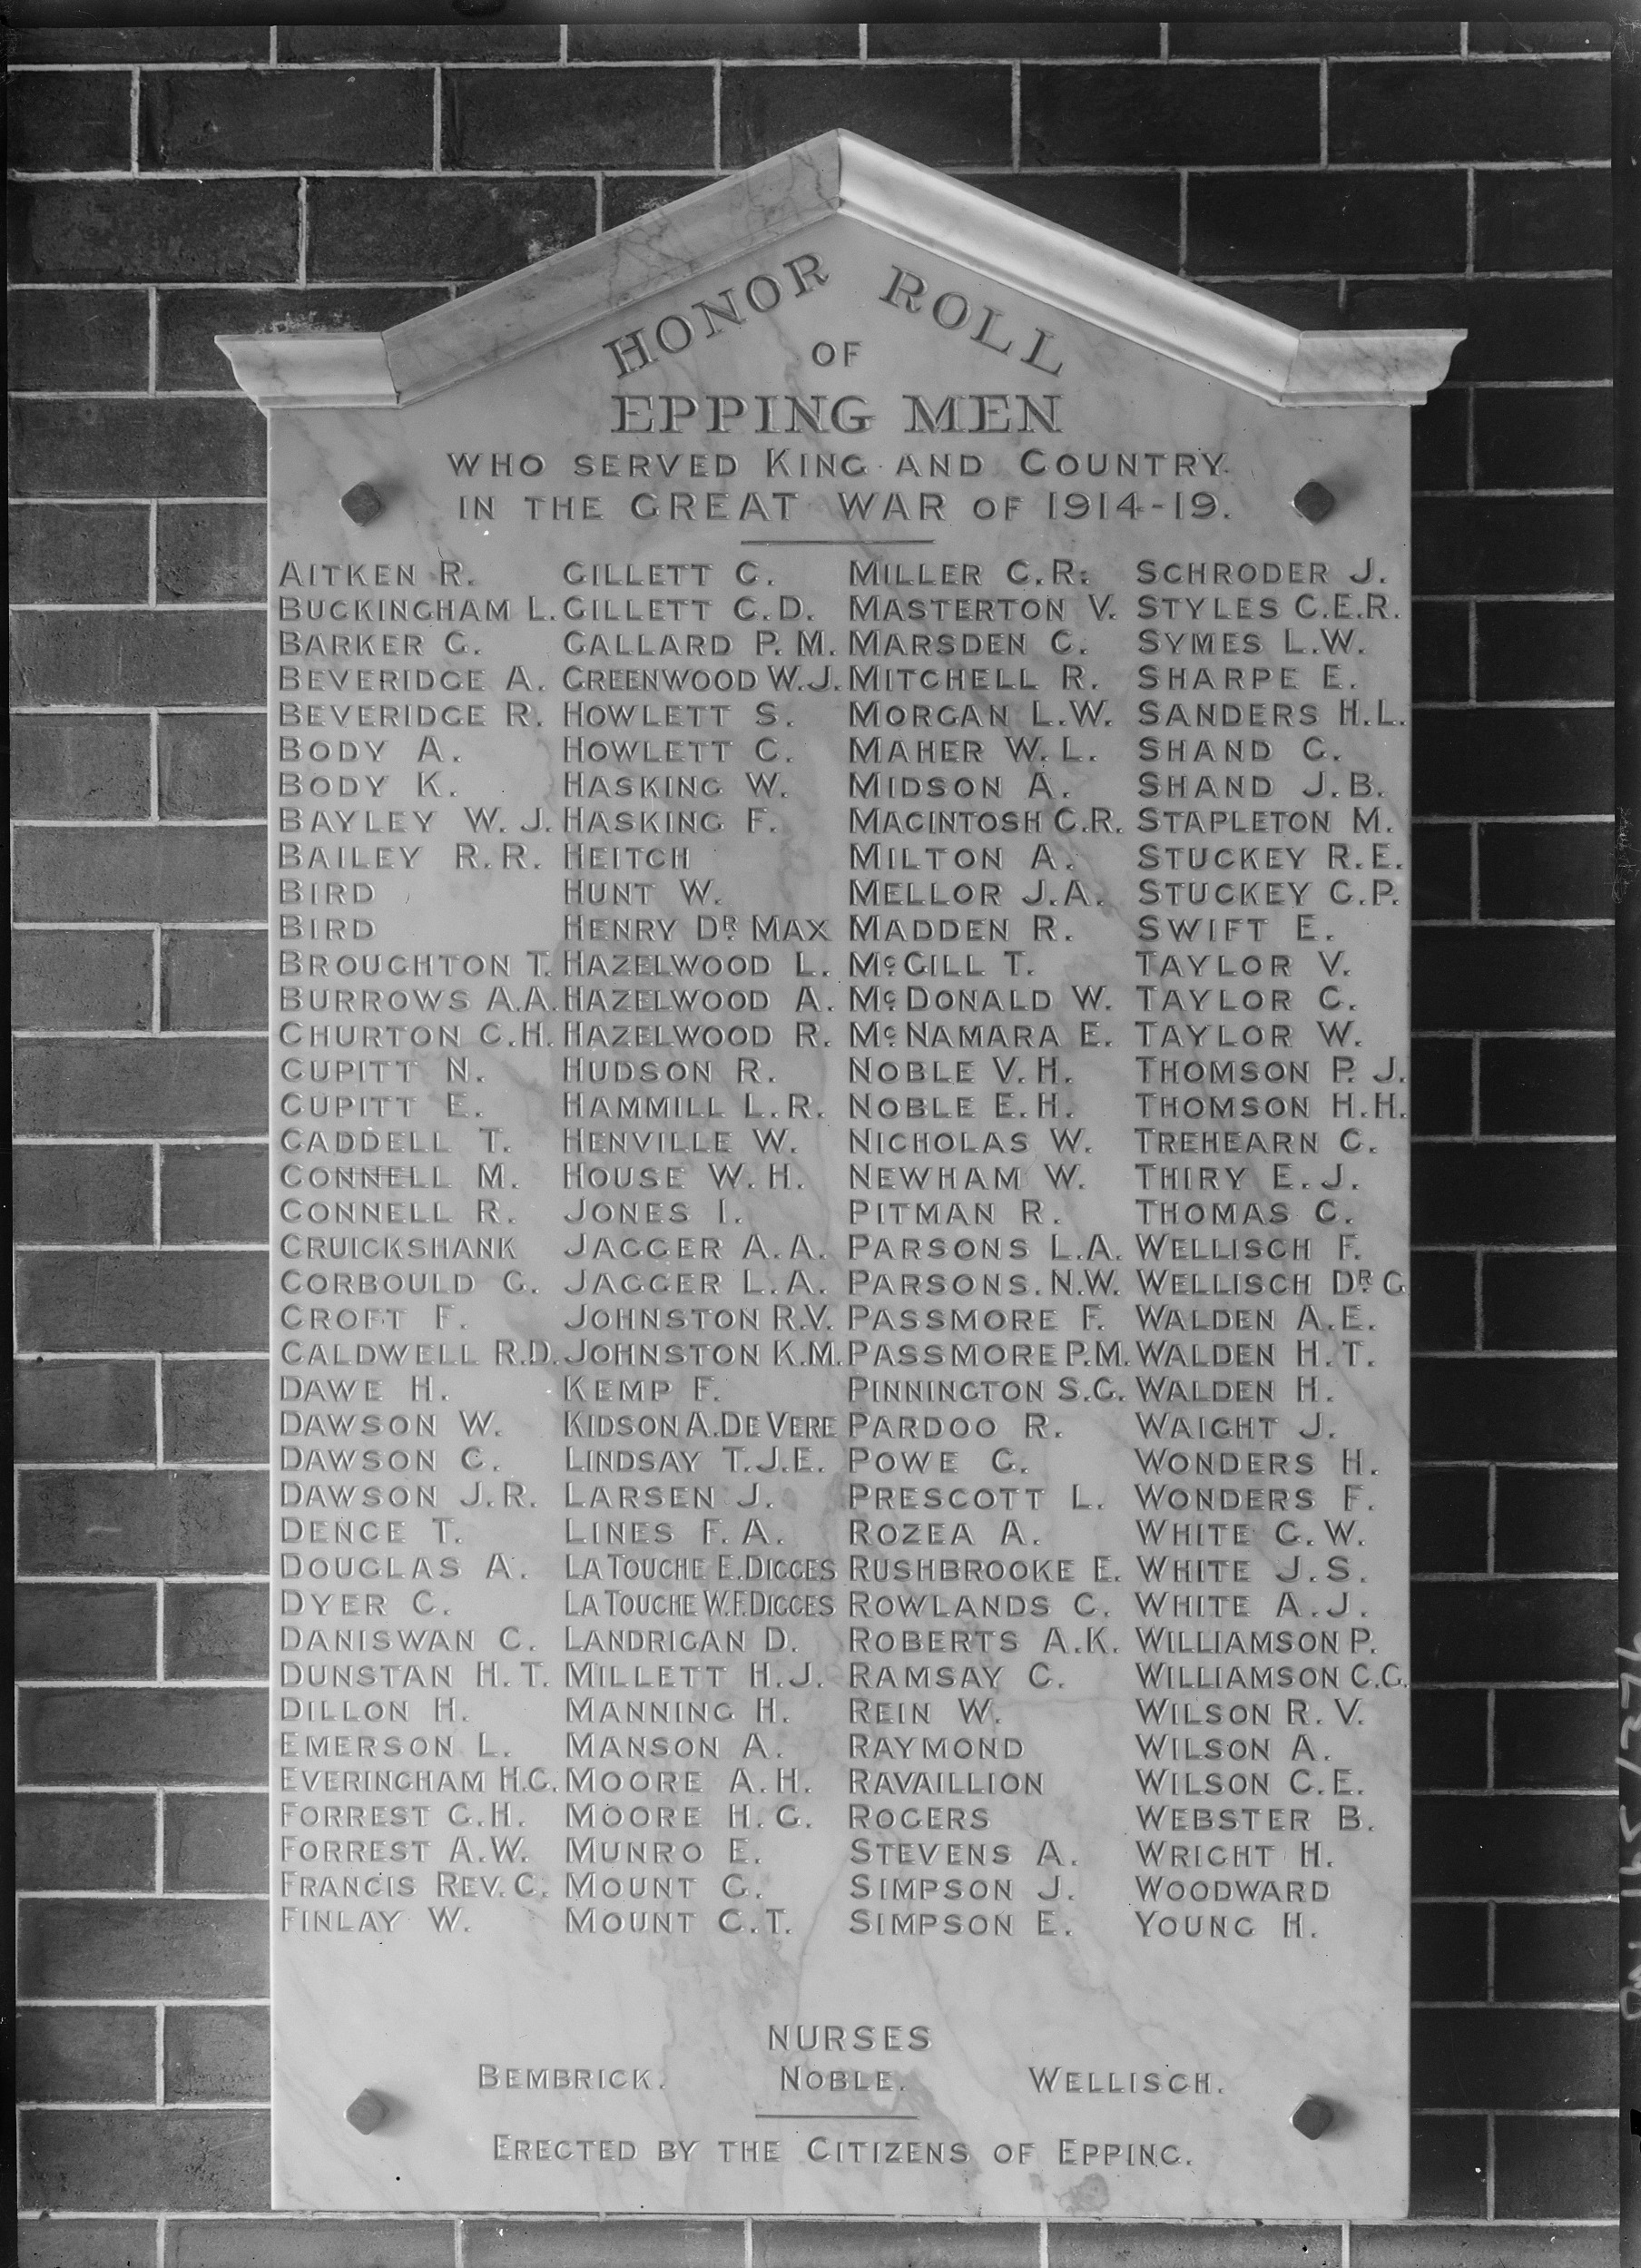 HONOR ROLL
OF
EPPING MEN
WHO SERVED KING AND COUNTRY
IN THE GREAT WAR OF 1914-19.
AITKEN R.
BUCKINGHAM L.
BARKER G.
BEVERIDGE A.
BEVERIDGE R.
BODY A.
BODY K.
BAYLEY W. J.
BAILEY R.R.
BIRD
BIRD
BROUGHTON T.
BURROWS A.A.
CHURTON C.H.
CUPITT N.
CUPITT E.
CADDELL T.
CONNELL M.
CONNELL R.
CRUICKSHANK
CORBOULD G.
CROFT F.
CALDWELL R.D.
DAWE H.
DAWSON W.
DAWSON C.
DAWSON J.R.
DENCE T.
DOUGLAS A.
DYER C.
DANISWAN C.
DUNSTAN H.T.
DILLON H.
EMERSON L.
EVERINGHAM H.G.
FORREST G.H.
FORREST A.W.
FRANCIS REV. C.
FINLAY W.
GILLETT C.
GILLETT C.D.
GALLARD P. M.
GREENWOOD W.J.
HOWLETT S.
HOWLETT C.
HASKING W.
HASKING F.
HEITCH
HUNT W.
HENRY DR. MAX
HAZELWOOD L.
HAZELWOOD A.
HAZELWOOD R.
HUDSON R.
HAMMILL L.R.
HENVILLE W.
HOUSE W.H.
JONES I.
JAGGER A.A.
JAGGER L.A.
JOHNSTON R.V.
JOHNSTON K.M.
KEMP F.
KIDSON A.DE VERE
LINDSAY T.J.E.
LARSEN J.
LINES F.A.
LA TOUCHE E.DIGGES
LA TOUCHE W.F.DIGGES
LANDRIGAN D.
MILLETT H.J.
MANNING H.
MANSON A.
MOORE A.H.
MOORE H.G.
MUNRO E.
MOUNT G.
MOUNT C.T.
MILLER C.R.
MASTERTON V.
MARSDEN C.
MITCHELL R.
MORGAN L.W.
MAHER W.L.
MIDSON A.
MACINTOSH C.R.
MILTON A.
MELLOR J.A.
MADDEN R.
McGILL T.
McDONALD W.
McNAMARA E.
NOBLE V.H.
NOBLE E.H.
NICHOLAS W.
NEWHAM W.
PITMAN R.
PARSONS L.A.
PARSONS. N.W.
PASSMORE F.
PASSMORE P.M.
PINNINGTON S.G.
PARDOO R.
POWE G.
PRESCOTT L.
ROZEA A.
RUSHBROOKE E.
ROWLANDS C.
ROBERTS A.K.
RAMSAY C.
REIN W.
RAYMOND
RAVAILLION
ROGERS
STEVENS A.
SIMPSON J.
SIMPSON E.
SCHRODER J.
STYLES C.E.R.
SYMES L.W.
SHARPE E.
SANDERS H.L.
SHAND G.
SHAND J.B.
STAPLETON M.
STUCKEY R.E.
STUCKEY C.P.
SWIFT E.
TAYLOR V.
TAYLOR C.
TAYLOR W.
THOMSON P. J.
THOMSON H.H.
TREHEARN C.
THIRY E.J.
THOMAS C.
WELLISCH F.
WELLISCH DR. G
WALDEN A.E.
WALDEN H.T.
WALDEN H.
WAIGHT J.
WONDERS H.
WONDERS F.
WHITE G.W.
WHITE J.S.
WHITE A.J.
WILLIAMSON P.
WILLIAMSON C.G.
WILSON R.V.
WILSON A.
WILSON C.E.
WEBSTER B.
WRIGHT H.
WOODWARD
YOUNG H.
NURSES
BEMBRICK. NOBLE. WELLISCH.
ERECTED BY THE CITIZENS OF EPPING.